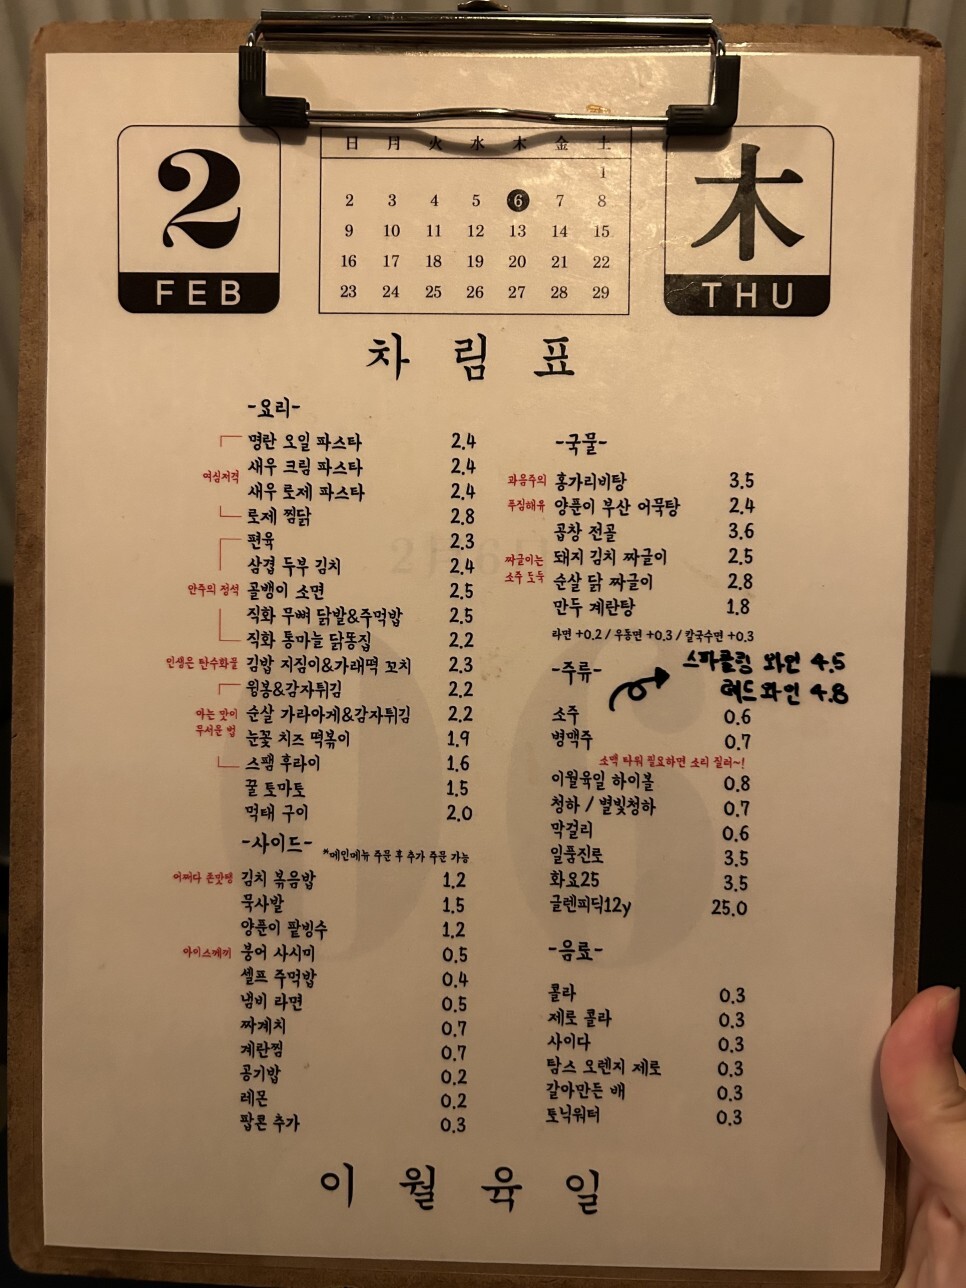 2
FEB
日 月 火 水 木 金 土
1
2 3 4 5 6 7 8
9 10 11 12 13 14 15
16 17 18 19 20 21 22
23 24 25 26 27 28 29
木
THU
차림표
-요리-
명란 오일 파스타 2.4
여심저격
새우 크림 파스타 2.4
새우 로제 파스타 2.4
로제 찜닭 2.8
편육 2.3
삼겹 두부 김치 2.4
안주의 정석
골뱅이 소면 2.5
직화 무뼈 닭발&주먹밥 2.5
직화 통마늘 닭똥집 2.2
인생은 탄수화물
김밥 지짐이&가래떡 꼬치 2.3
윙봉&감자튀김 2.2
아는 맛이
무서운 법
순살 가라아게&감자튀김 2.2
눈꽃 치즈 떡볶이 1.9
스팸 후라이 1.6
꿀 토마토 1.5
먹태 구이 2.0
-사이드- *메인메뉴 주문 후 추가 주문 가능
어쩌다 존맛탱
김치 볶음밥 1.2
묵사발 1.5
양푼이 팥빙수 1.2
아이스께끼
붕어 사시미 0.5
셀프 주먹밥 0.4
냄비 라면 0.5
짜계치 0.7
계란찜 0.7
공기밥 0.2
레몬 0.2
팝콘 추가 0.3
-국물-
과음주의
홍가리비탕 3.5
푸짐해유
양푼이 부산 어묵탕 2.4
곱창 전골 3.6
짜글이는
소주 도둑
돼지 김치 짜글이 2.5
순살 닭 짜글이 2.8
만두 계란탕 1.8
라면 +0.2 / 우동면 +0.3 / 칼국수면 +0.3
-주류-
스파클링 와인 4.5
레드 와인 4.8
소주 0.6
병맥주 0.7
소맥 타워 필요하면 소리 질러~!
이월육일 하이볼 0.8
청하 / 별빛청하 0.7
막걸리 0.6
일품진로 3.5
화요25 3.5
글렌피딕12y 25.0
-음료-
콜라 0.3
제로 콜라 0.3
사이다 0.3
탐스 오렌지 제로 0.3
갈아만든 배 0.3
토닉워터 0.3
이월육일